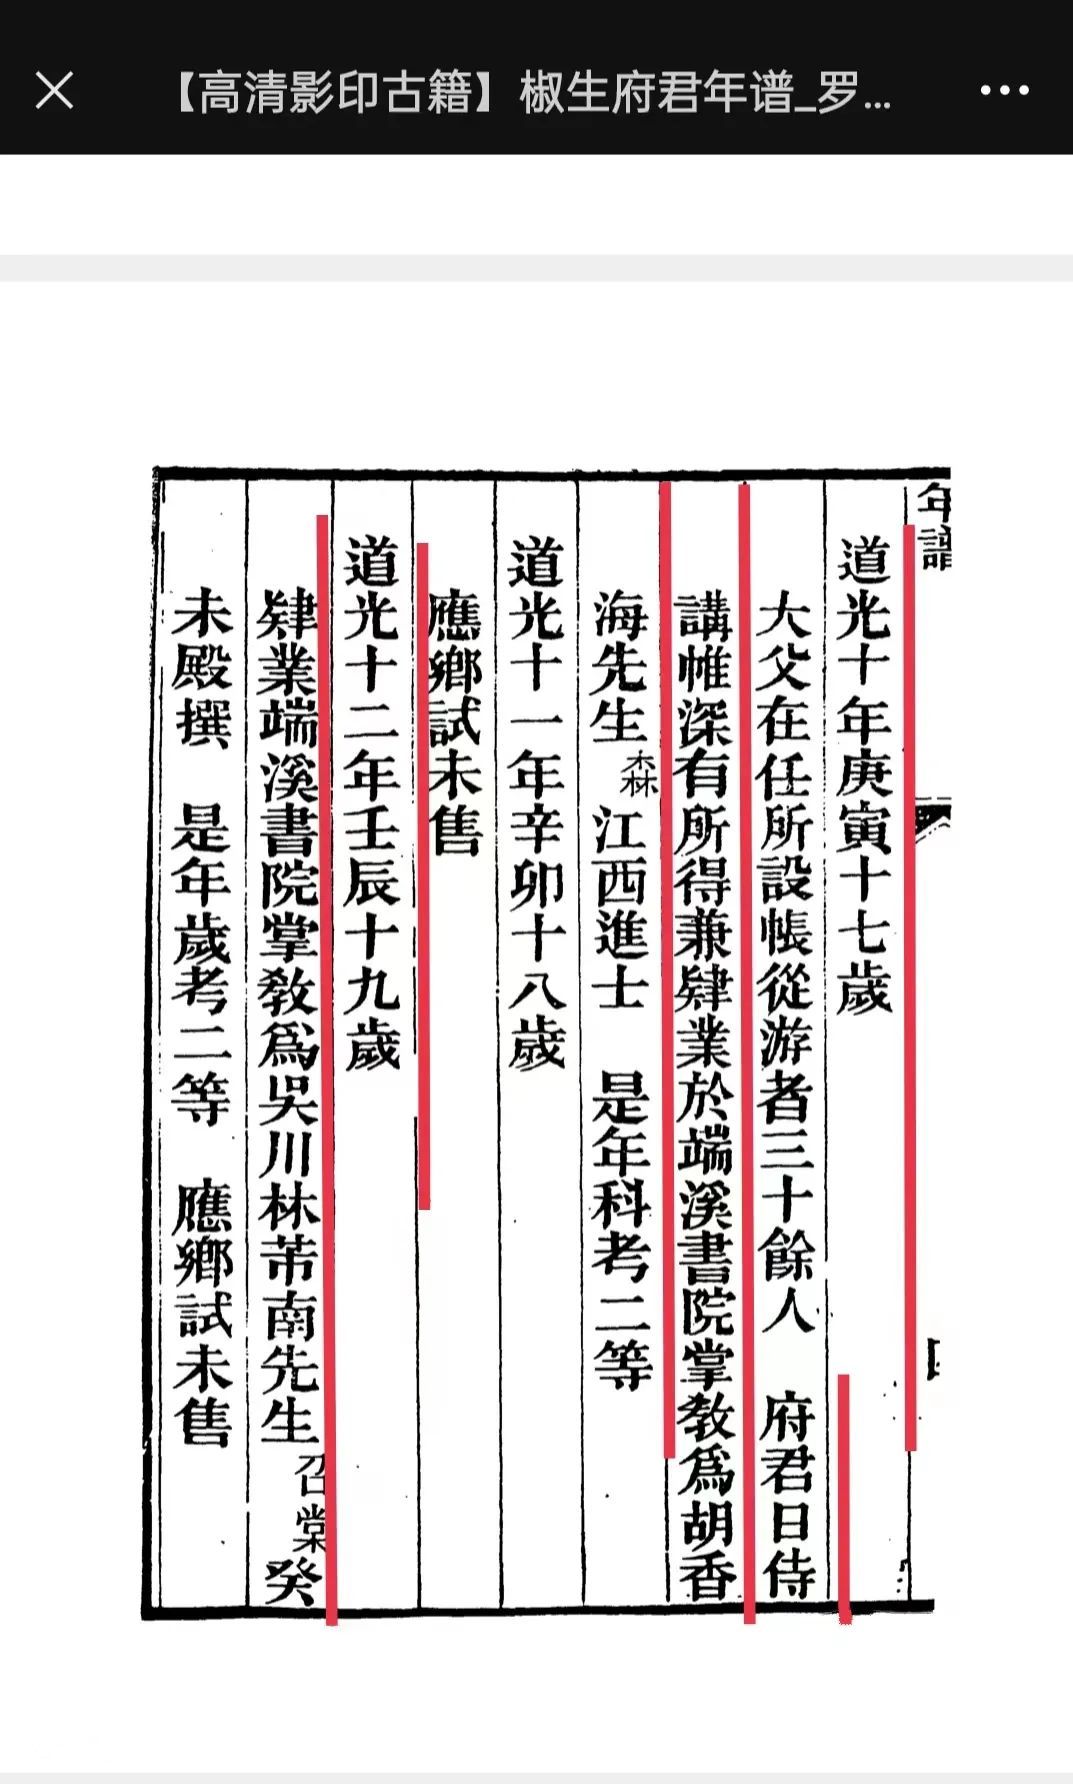 【高清影印古籍】椒生府君年谱_罗...
年譜
道光十年庚寅十七歲
大父在任所設帳從游者三十餘人 府君日侍
講帷深有所得兼肄業於端溪書院掌教爲胡香
海先生森 江西進士 是年科考二等
道光十一年辛卯十八歲
應鄉試未售
道光十二年壬辰十九歲
肄業端溪書院掌教爲吳川林芾南先生召棠癸
未殿撰 是年歲考二等 應鄉試未售